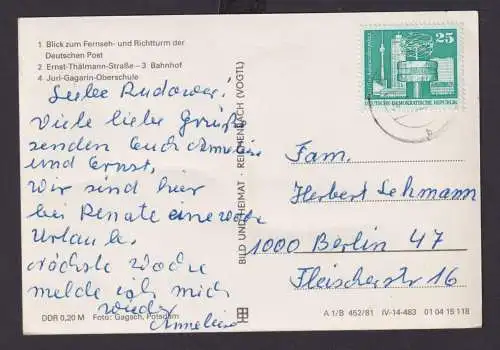 1 Blick zum Fernseh- und Richtturm der
Deutschen Post
2 Ernst-Thälmann-Straße – 3 Bahnhof
4 Juri-Gagarin-Oberschule
Liebe Rudower!
Viele liebe Grüße
senden Euch Annelise
und Ernst,
Wir sind hier
bei Renate eine Woche
Urlaub.
nächste Woche
melde ich mich
wieder
DDR 0,20 M Foto: Gagsch, Potsdam
BILD UND HEIMAT · REICHENBACH (VOGTL)
25
DEUTSCHE DEMOKRATISCHE REPUBLIK
Fam.
Herbert Lehmann
1000 Berlin 47
Fleischerstr 16
A 1/B 452/81 IV-14-483 01 04 15 118